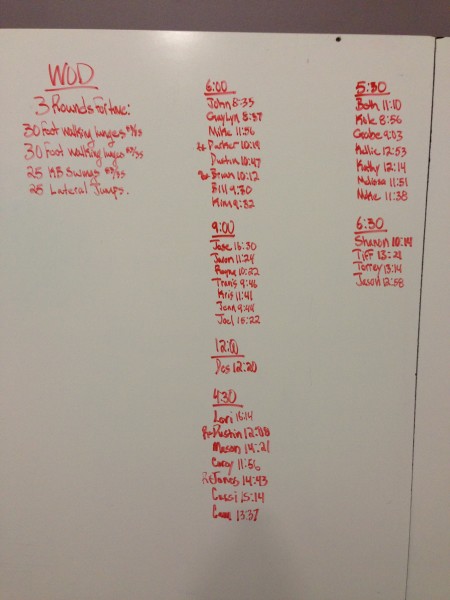 WOD
3 Rounds For time:
30 Foot walking lunges
30 Foot walking lunges
25 KB Swings
25 Lateral Jumps.
6:00
John 8:35
Gaylyn 8:37
Mike 11:56
Parker 10:19
Dustin 10:47
Brian 10:12
Bill 9:30
Kim 9:32
9:00
Jase 15:30
Jason 11:24
10:22
Travis 9:46
Kris 11:41
9:44
Joel 15:22
12:00
Das 12:20
4:30
Lori 15:14
Rx Dustin 12:08
Mason 14:21
Corey 11:56
Rx Jones 14:43
Cassi 15:14
13:37
5:30
Beth 11:10
Kyle 8:56
9:03
Kallie 12:53
Kathy 12:14
Melissa 11:51
Mike 11:38
6:30
Shanon 10:14
Tiff 13:21
Torrey 13:14
Jason 12:58